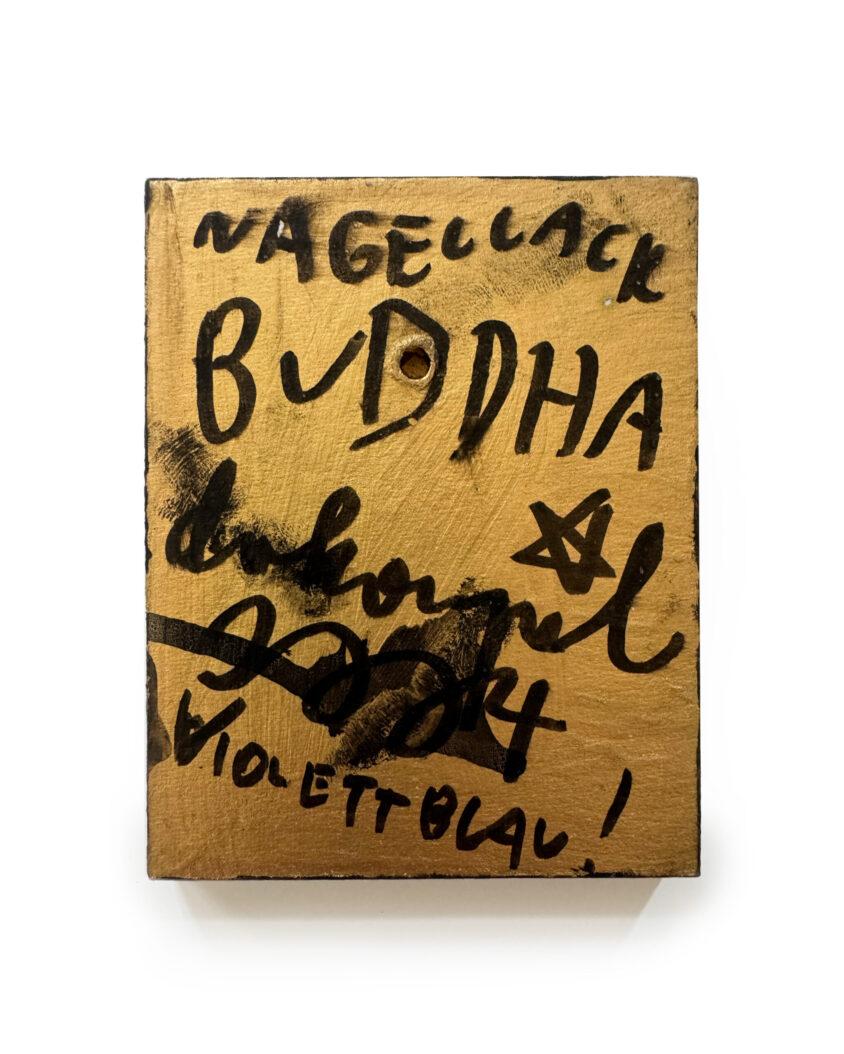 NAGELLACK
BUDDHA
2024
VIOLETTBLAU!